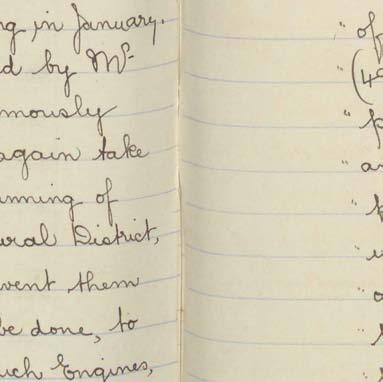 ng in January.
d by Mr
mously
again take
unning of
ural District,
vent them
be done, to
uch Engines,
" of